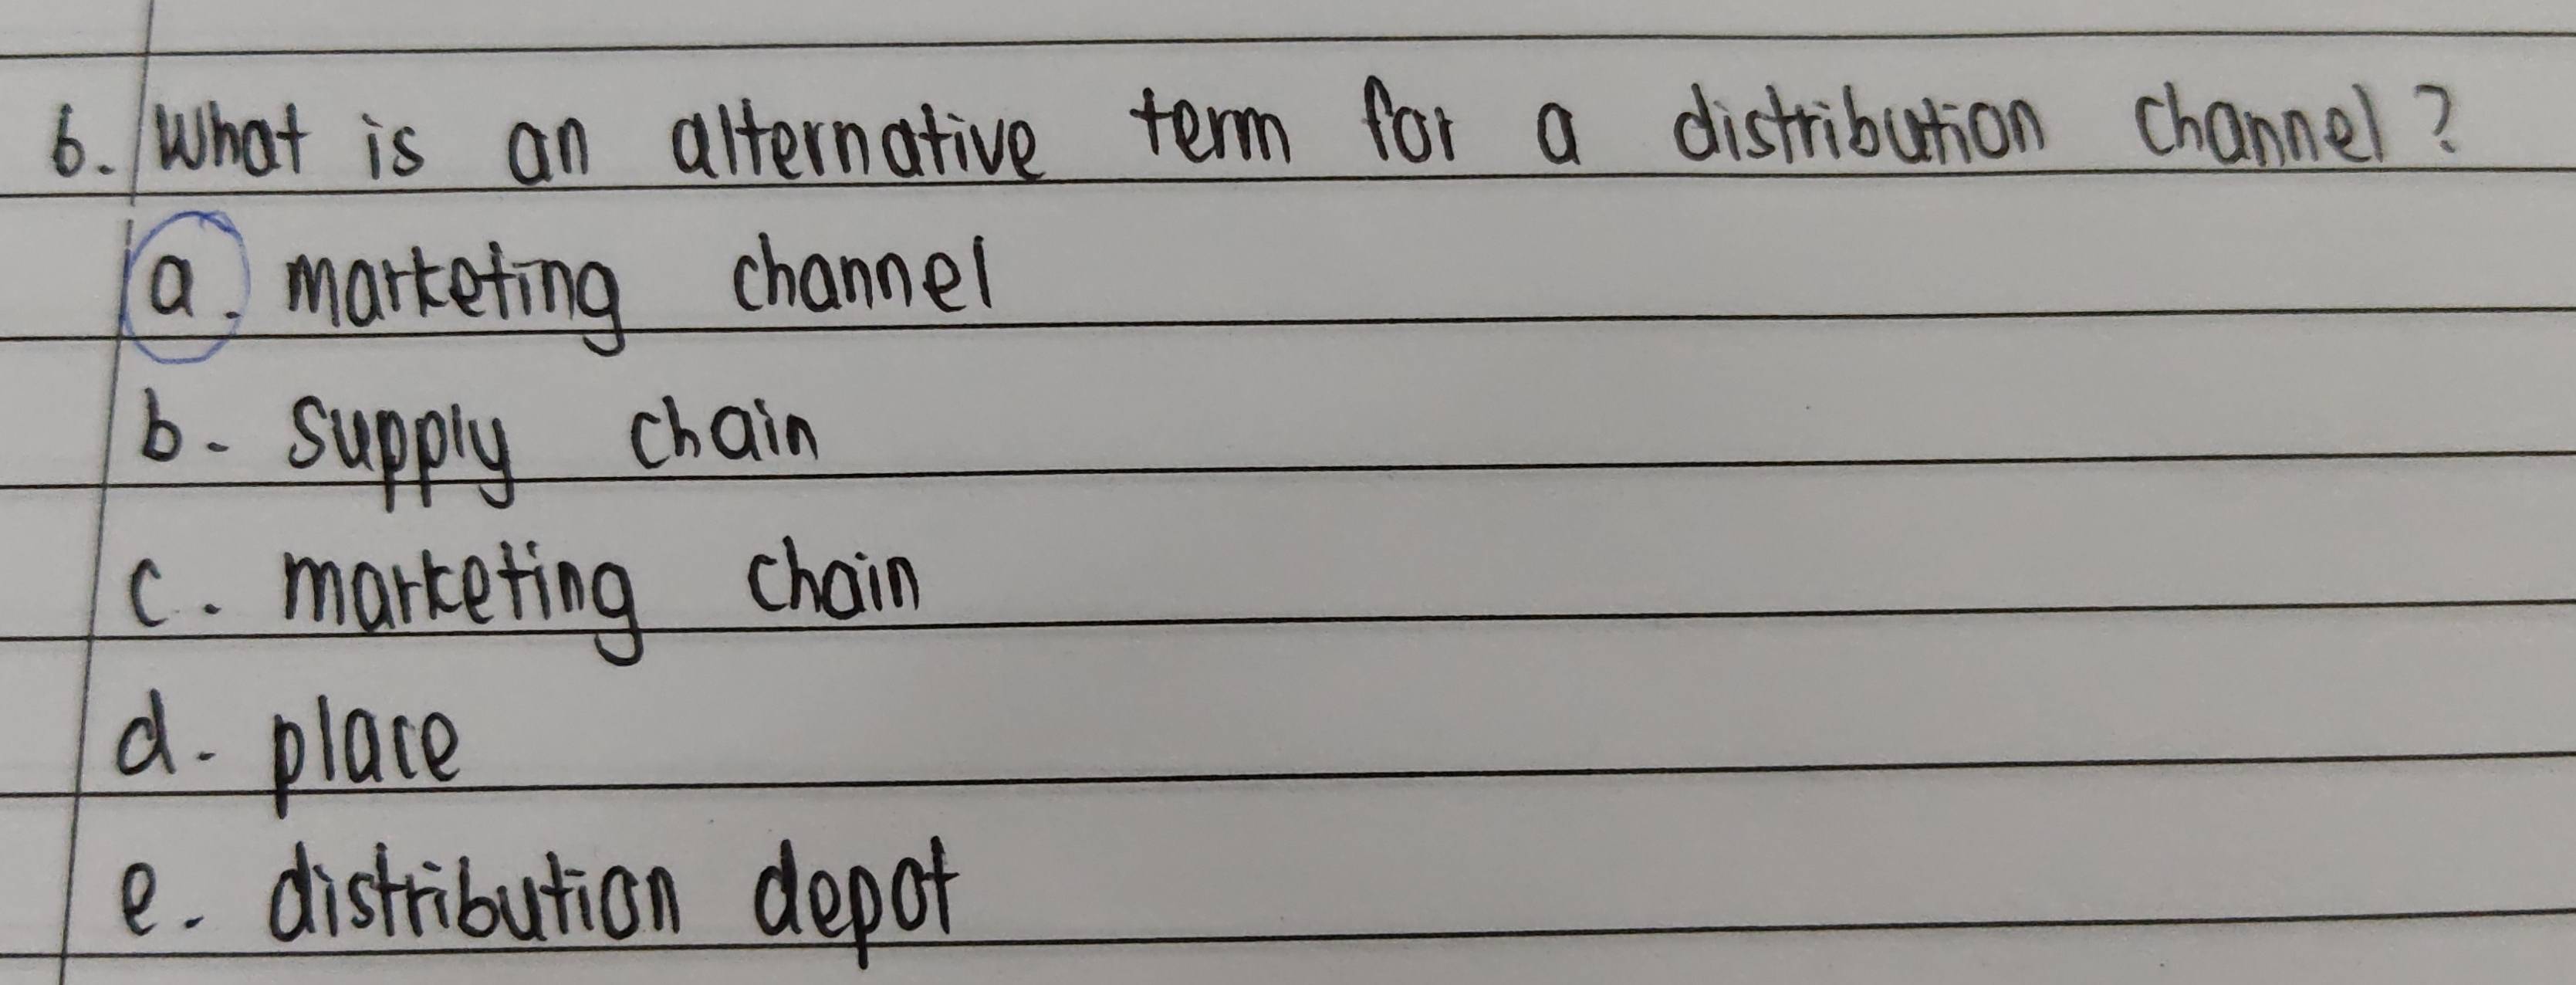 6. What is an alternative term for a distribution channel?
a. marketing channel
b. supply chain
c. marketing chain
d. place
e. distribution depot